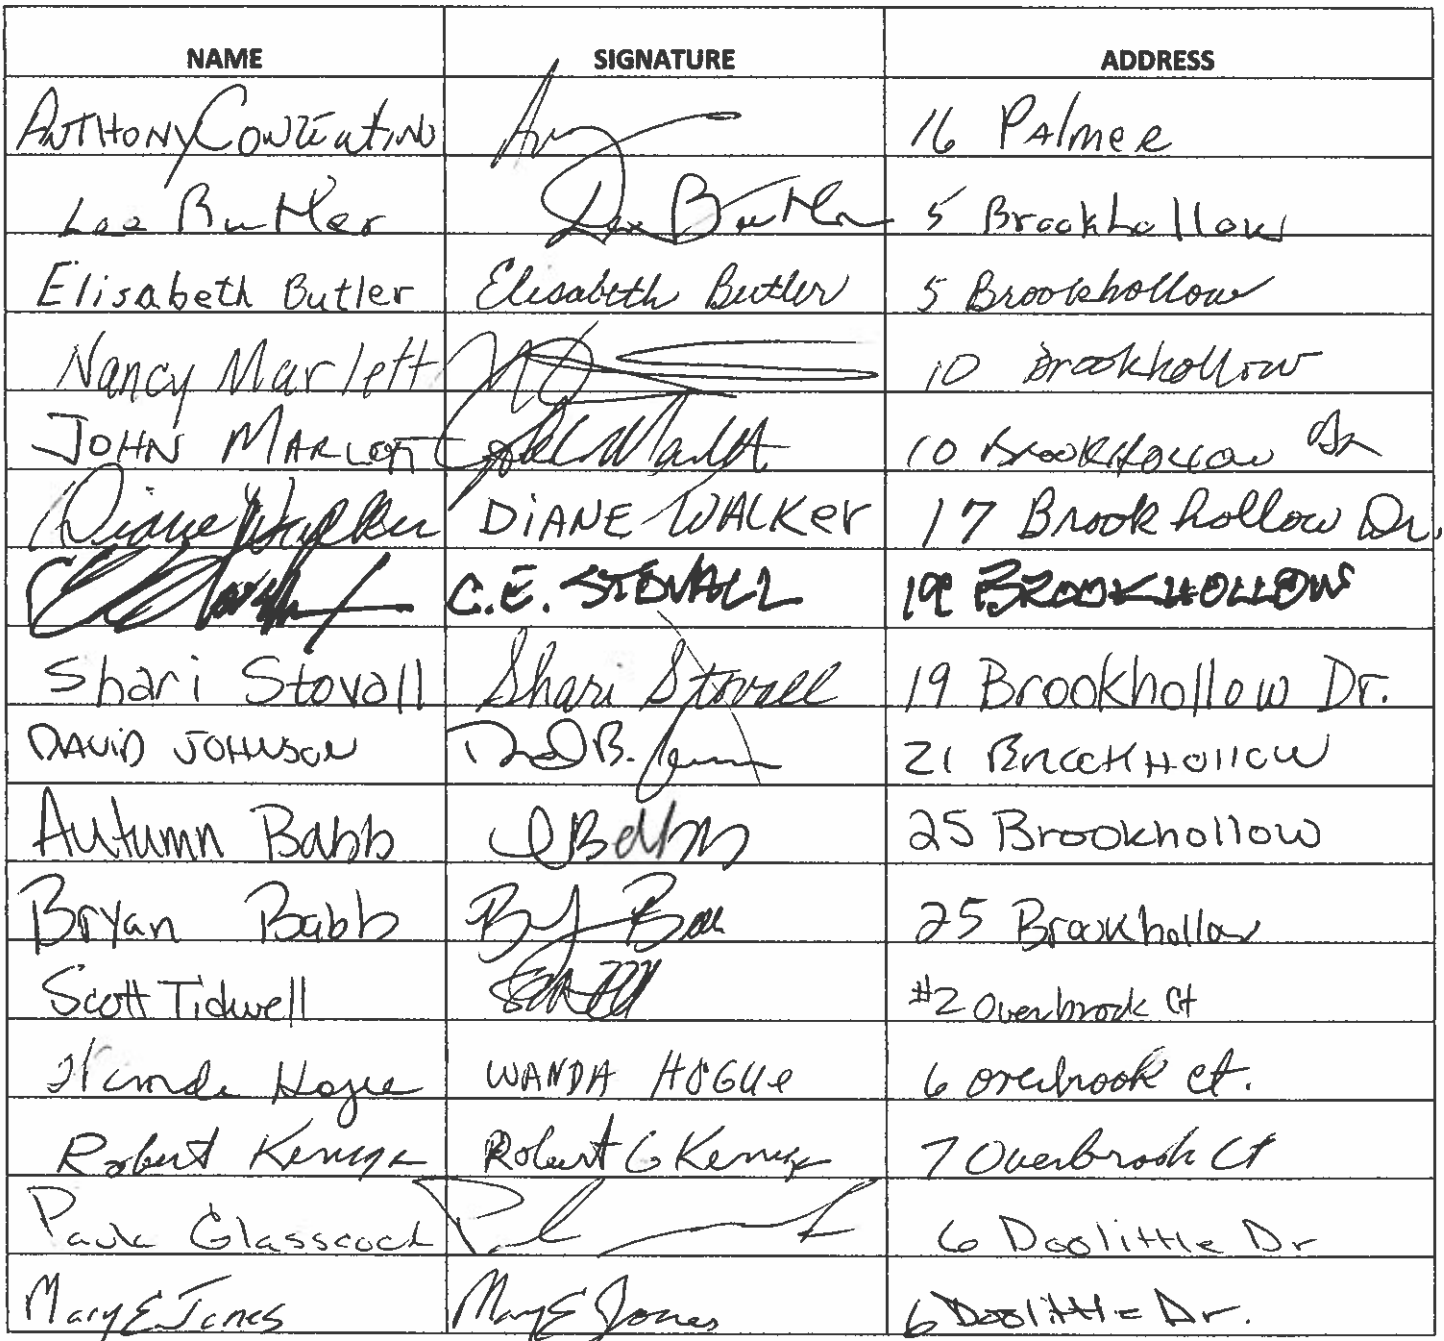 NAME SIGNATURE ADDRESS
ANTHONY 16 PAlmer
Lee Butler Lee Butler 5 Brookhollow
Elisabeth Butler Elisabeth Butler 5 Brookhollow
Nancy Marlett 10 Brookhollow
JOHN MARLETT John Marlett 10 BrookHollow Dr
Diane Walker DiANE WALKer 17 Brookhollow Dr.
C.E. STOVALL 19 BROOKHOLLOW
Shari Stovall Shari Stovall 19 Brookhollow Dr.
DAViD JOHNSON David B. 21 BrookHollow
Autumn Babb 25 Brookhollow
Bryan Babb 25 Brookhollow
Scott Tidwell #2 Overbrook Ct
Wanda Hogue WANDA HOGUe 6 overbrook ct.
Robert Robert G 7 Overbrook Ct
Paula Glasscock 6 Doolittle Dr
Mary E Jones Mary E Jones 6 Doolittle Dr.